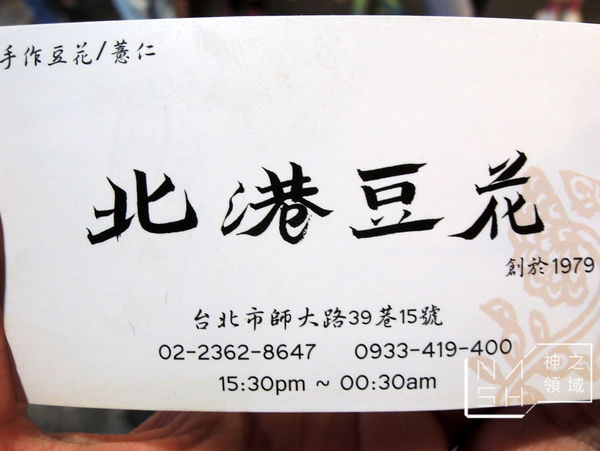 手作豆花/薏仁
北港豆花
創於1979
台北市師大路39巷15號
02-2362-8647 0933-419-400
15:30pm ~ 00:30am
神之
領域